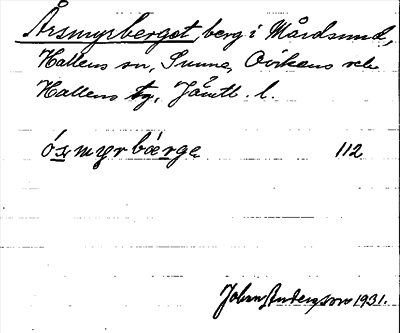 Årsmyrberget, berg i Mårdsund,
Hallens sn, Sunne, Ovikens o
Hallens tg, Jämtl. l.
ósmyrbærge 112
Johan Anderson 1931.